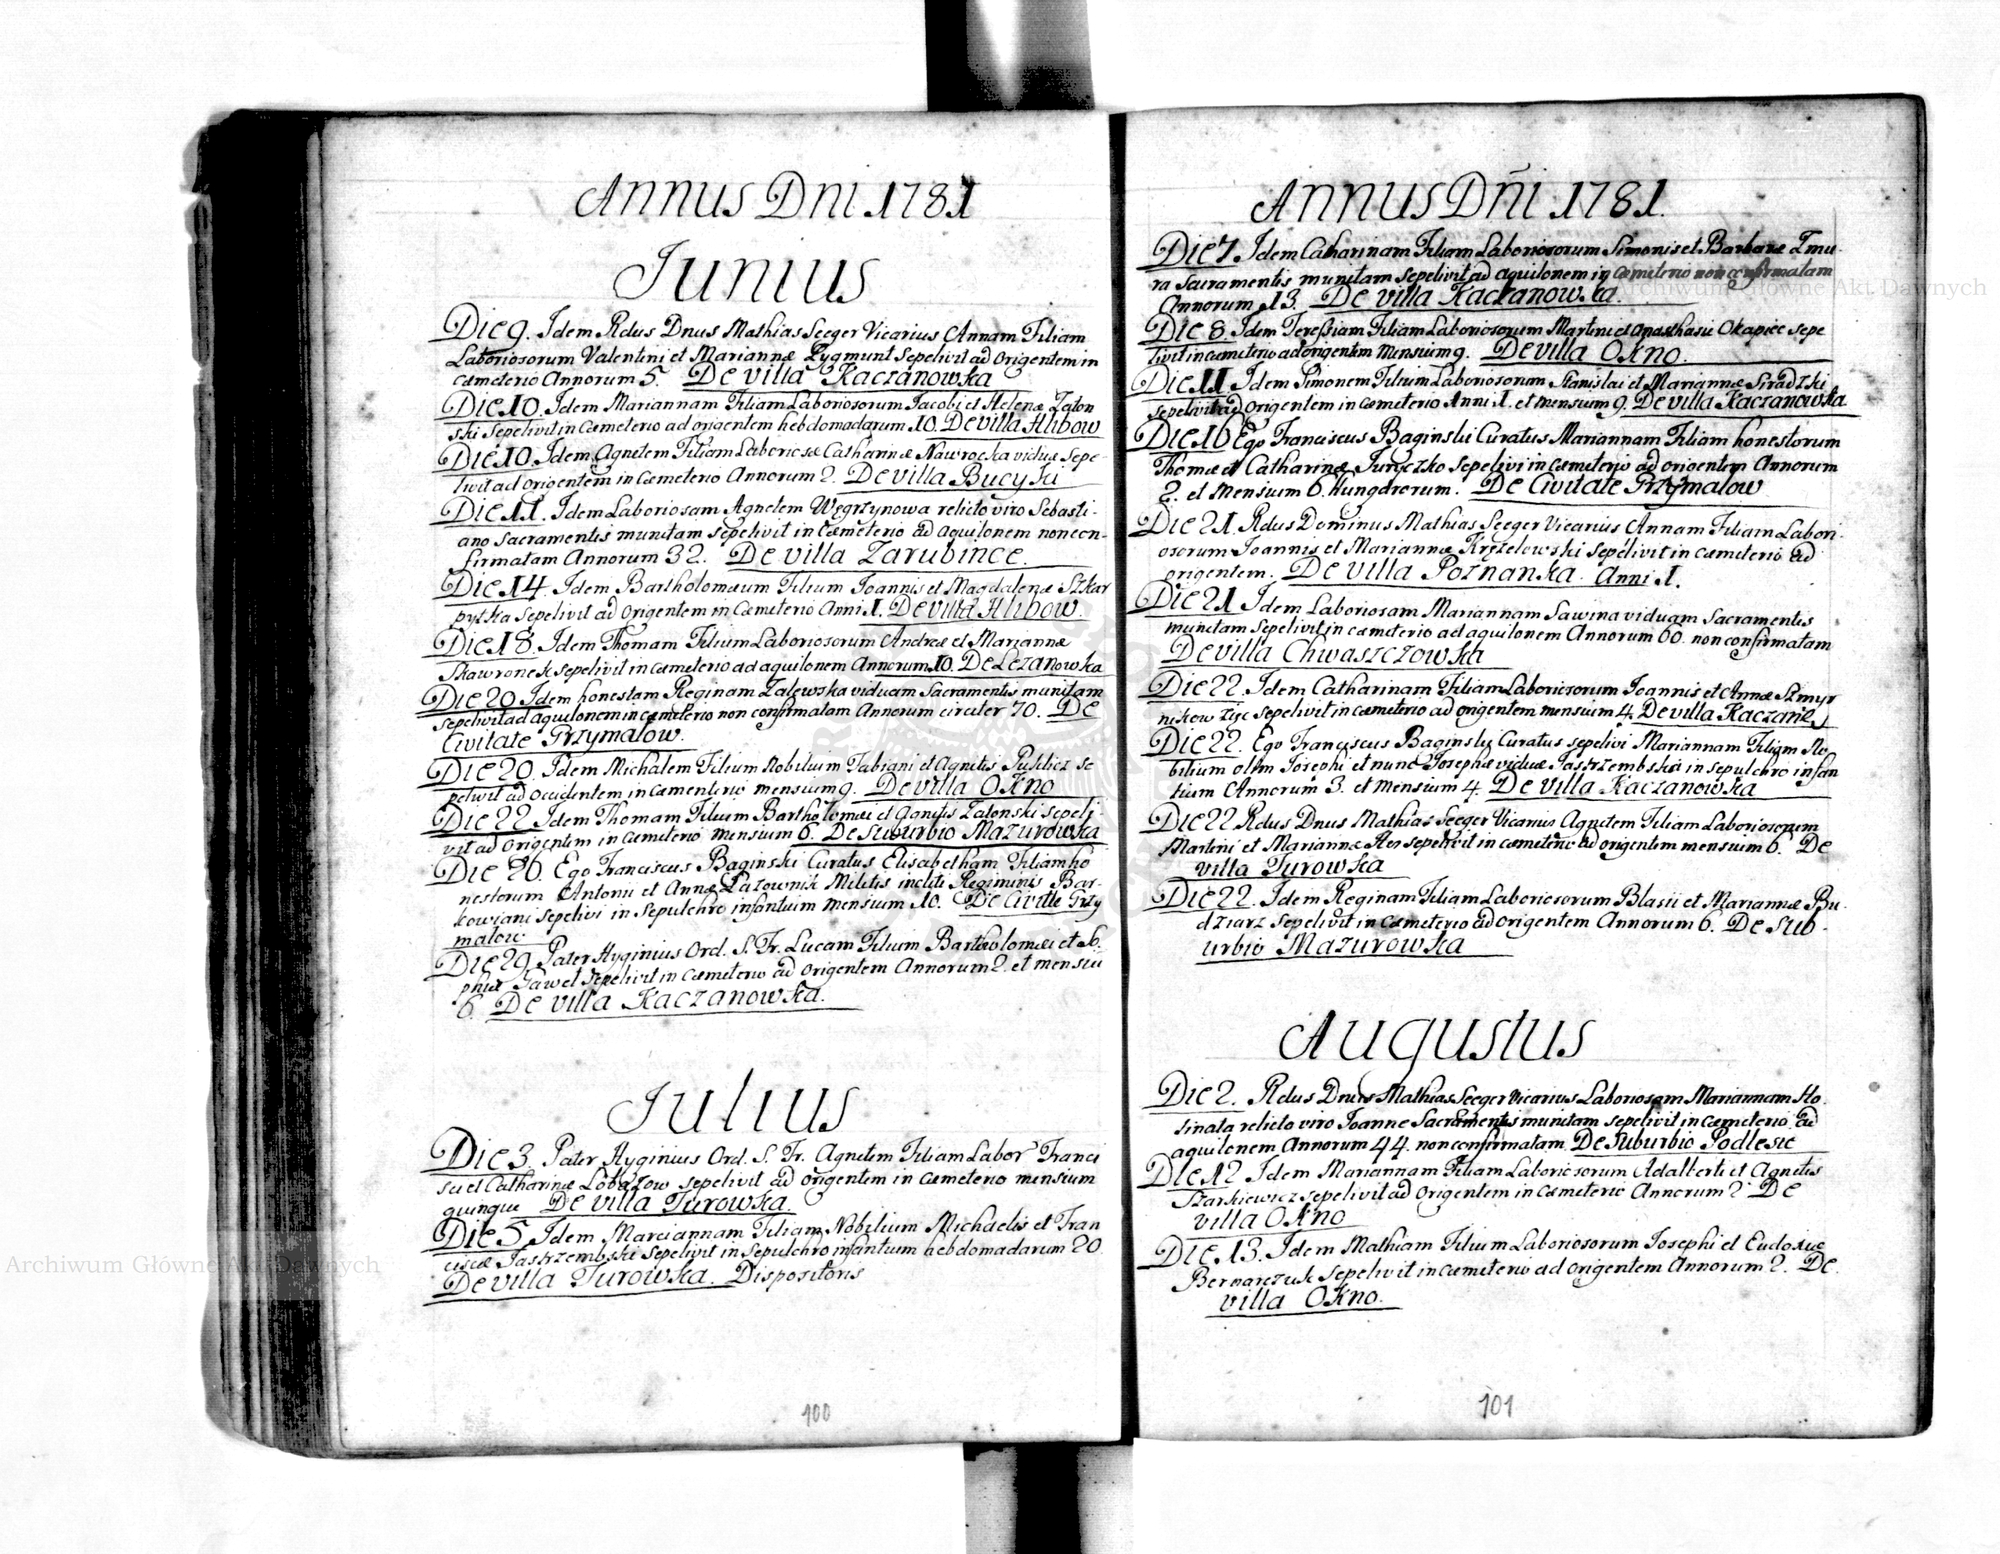 Annus Dni 1781
Junius
Die 9. Idem Rdus Dnus Mathias Seeger Vicarius Annam Filiam
Laboriosorum Valentini et Mariannæ Zygmunt Sepelivit ad Origentem in
cæmeterio Annorum 5. De villa Kaczanowka
Die 10. Idem Mariannam Filiam Laboriosorum Jacobi et Helenæ Zaton
ski Sepelivit in Cæmeterio ad origentem hebdomadarum 10. De villa Hlibow
Die 10. Idem Agnetem Filiam Laboriosæ Catharinæ Nawrocka viduæ Sepe-
livit ad origentem in Cæmeterio Annorum 2. De villa Bucyki
Die 11. Idem Laboriosam Agnetem Węgrzynowa relicto viro Sebasti-
ano Sacramentis munitam sepelivit in Cæmeterio ad aquilonem non con-
firmatam Annorum 32. De villa Zarubince.
Die 14. Idem Bartholomæum Filium Joannis et Magdalenæ Szkar
pytka Sepelivit ad Origentem in Cæmeterio Anni 1. De villa Hlibow.
Die 18. Idem Thomam Filium Laboriosorum Andreæ et Mariannæ
Skawronek sepelivit in Cæmeterio ad aquilonem Annorum 10. De Lezanowka
Die 20 Idem honestam Reginam Zalewska viduam Sacramentis munitam
sepelivit ad aquilonem in cæmeterio non confirmatam Annorum circiter 70. De
Civitate Grzymalow.
Die 20. Idem Michalem Filium Nobilium Fabiani et Agnetis se
pelivit ad Occidentem in cæmenterio mensium 9. De villa Okno
Die 22 Idem Thomam Filium Bartholomæi et Agnetis Zatonski sepeli
vit ad Origentem in Cæmeterio mensium 6. De Suburbio Mazurowka
Die 26. Ego Franciscus Baginski Curatus Elisabetham Filiam ho
nestorum Antonii et Annæ Lazownik Militis incliti Regiminis Bar-
kowiani sepelivi in Sepulchro infantium mensium 10. De Civitte Grzy
malow
Die 29 Pater Hyginius Ord. S. Fr. Lucam Filium Bartholomæi et So
phiæ Pawel Sepelivit in Cæmeterio ad Origentem Annorum 2. et mensiū
6. De villa Kaczanowka.
Julius
Die 3. Pater Hyginius Ord. S. Fr. Agnetem Filiam Labor Franci
sci et Catharinæ Lobazow sepelivit ad origentem in cæmeterio mensium
quinque De villa Turowka.
Die 5 Idem Marciannam Filiam Nobilium Michaelis et Fran
ciscæ Jastrzembski Sepelivit in Sepulchro infantium hebdomadarum 20.
De villa Turowka. Dispositoris
100
Annus Dñi 1781.
Die 7. Idem Catharinam Filiam Laboriosorum Simonis et Barbaræ Zmu
ra Sacramentis munitam Sepelivit ad aquilonem in cæmeterio non confirmatam
Annorum 13. De villa Kaczanowka.
Die 8. Idem Teressiam Filiam Laboriosorum Martini et Anasthasiæ Okapiec sepe
livit in cæmeterio ad origentem Mensium 9. De villa Okno.
Die 11 Idem Simonem Filium Laboriosorum Stanislai et Mariannæ Siradzki
sepelivit ad Origentem in cæmeterio Anni 1. et mensium 9. De villa Kaczanowka
Die 16 Ego Franciscus Baginski Curatus Mariannam Filiam honestorum
Thomæ et Catharinæ Juryczko Sepelivi in cæmeterio ad origentem Annorum
2. et Mensium 6. Hungarorum. De Civitate Grzymalow
Die 21. Rdus Dominus Mathias Seeger Vicarius Annam Filiam Labori-
osorum Joannis et Mariannæ Kręzelowski sepelivit in cæmeterio ad
origentem. De villa Poznanka. Anni 1.
Die 21 Idem Laboriosam Mariannam Sawina viduam Sacramentis
munitam Sepelivit in cæmeterio ad aquilonem Annorum 60. non confirmatam
De villa Chwaszczowka
Die 22. Idem Catharinam Filiam Laboriosorum Joannis et Annæ Szmyr
nikow Zięc sepelivit in cæmeterio ad origentem mensium 4. De villa Kaczanł
Die 22. Ego Franciscus Baginsky Curatus sepelivi Mariannam Filiam No
bilium olim Josephi et nunc Josephæ viduæ Jastrzembska in sepulchro infan
tium Annorum 3. et Mensium 4. De villa Kaczanowka
Die 22. Rdus Dnus Mathias Seeger Vicarius Agnetem Filiam Laboriosorum
Martini et Mariannæ sepelivit in cæmeterio ad origentem mensium 6. De
villa Turowka
Die 22. Idem Reginam Filiam Laboriosorum Blasii et Mariannæ Bu
dziarz sepelivit in Cæmeterio ad origentem Annorum 6. De Sub-
urbio Mazurowka
Augustus
Die 2. Rdus Dnus Mathias Seeger Vicarius Laboriosam Mariannam Ho
sinata relicto viro Joanne Sacramentis munitam sepelivit in cæmeterio ad
aquilonem Annorum 44. non confirmatam De Suburbio Podlesie
Die 12 Idem Mariannam Filiam Laboriosorum Adalberti et Agnetis
Szarkiewicz sepelivit ad Origentem in cæmeterio Annorum 2 De
villa Okno
Die 13. Idem Mathiam Filium Laboriosorum Josephi et Eudoxiæ
Bernarczuk Sepelivit in Cæmeterio ad origentem Annorum 2. De
villa Okno.
101
Archiwum Główne Akt Dawnych
Archiwum Główne Akt Dawnych